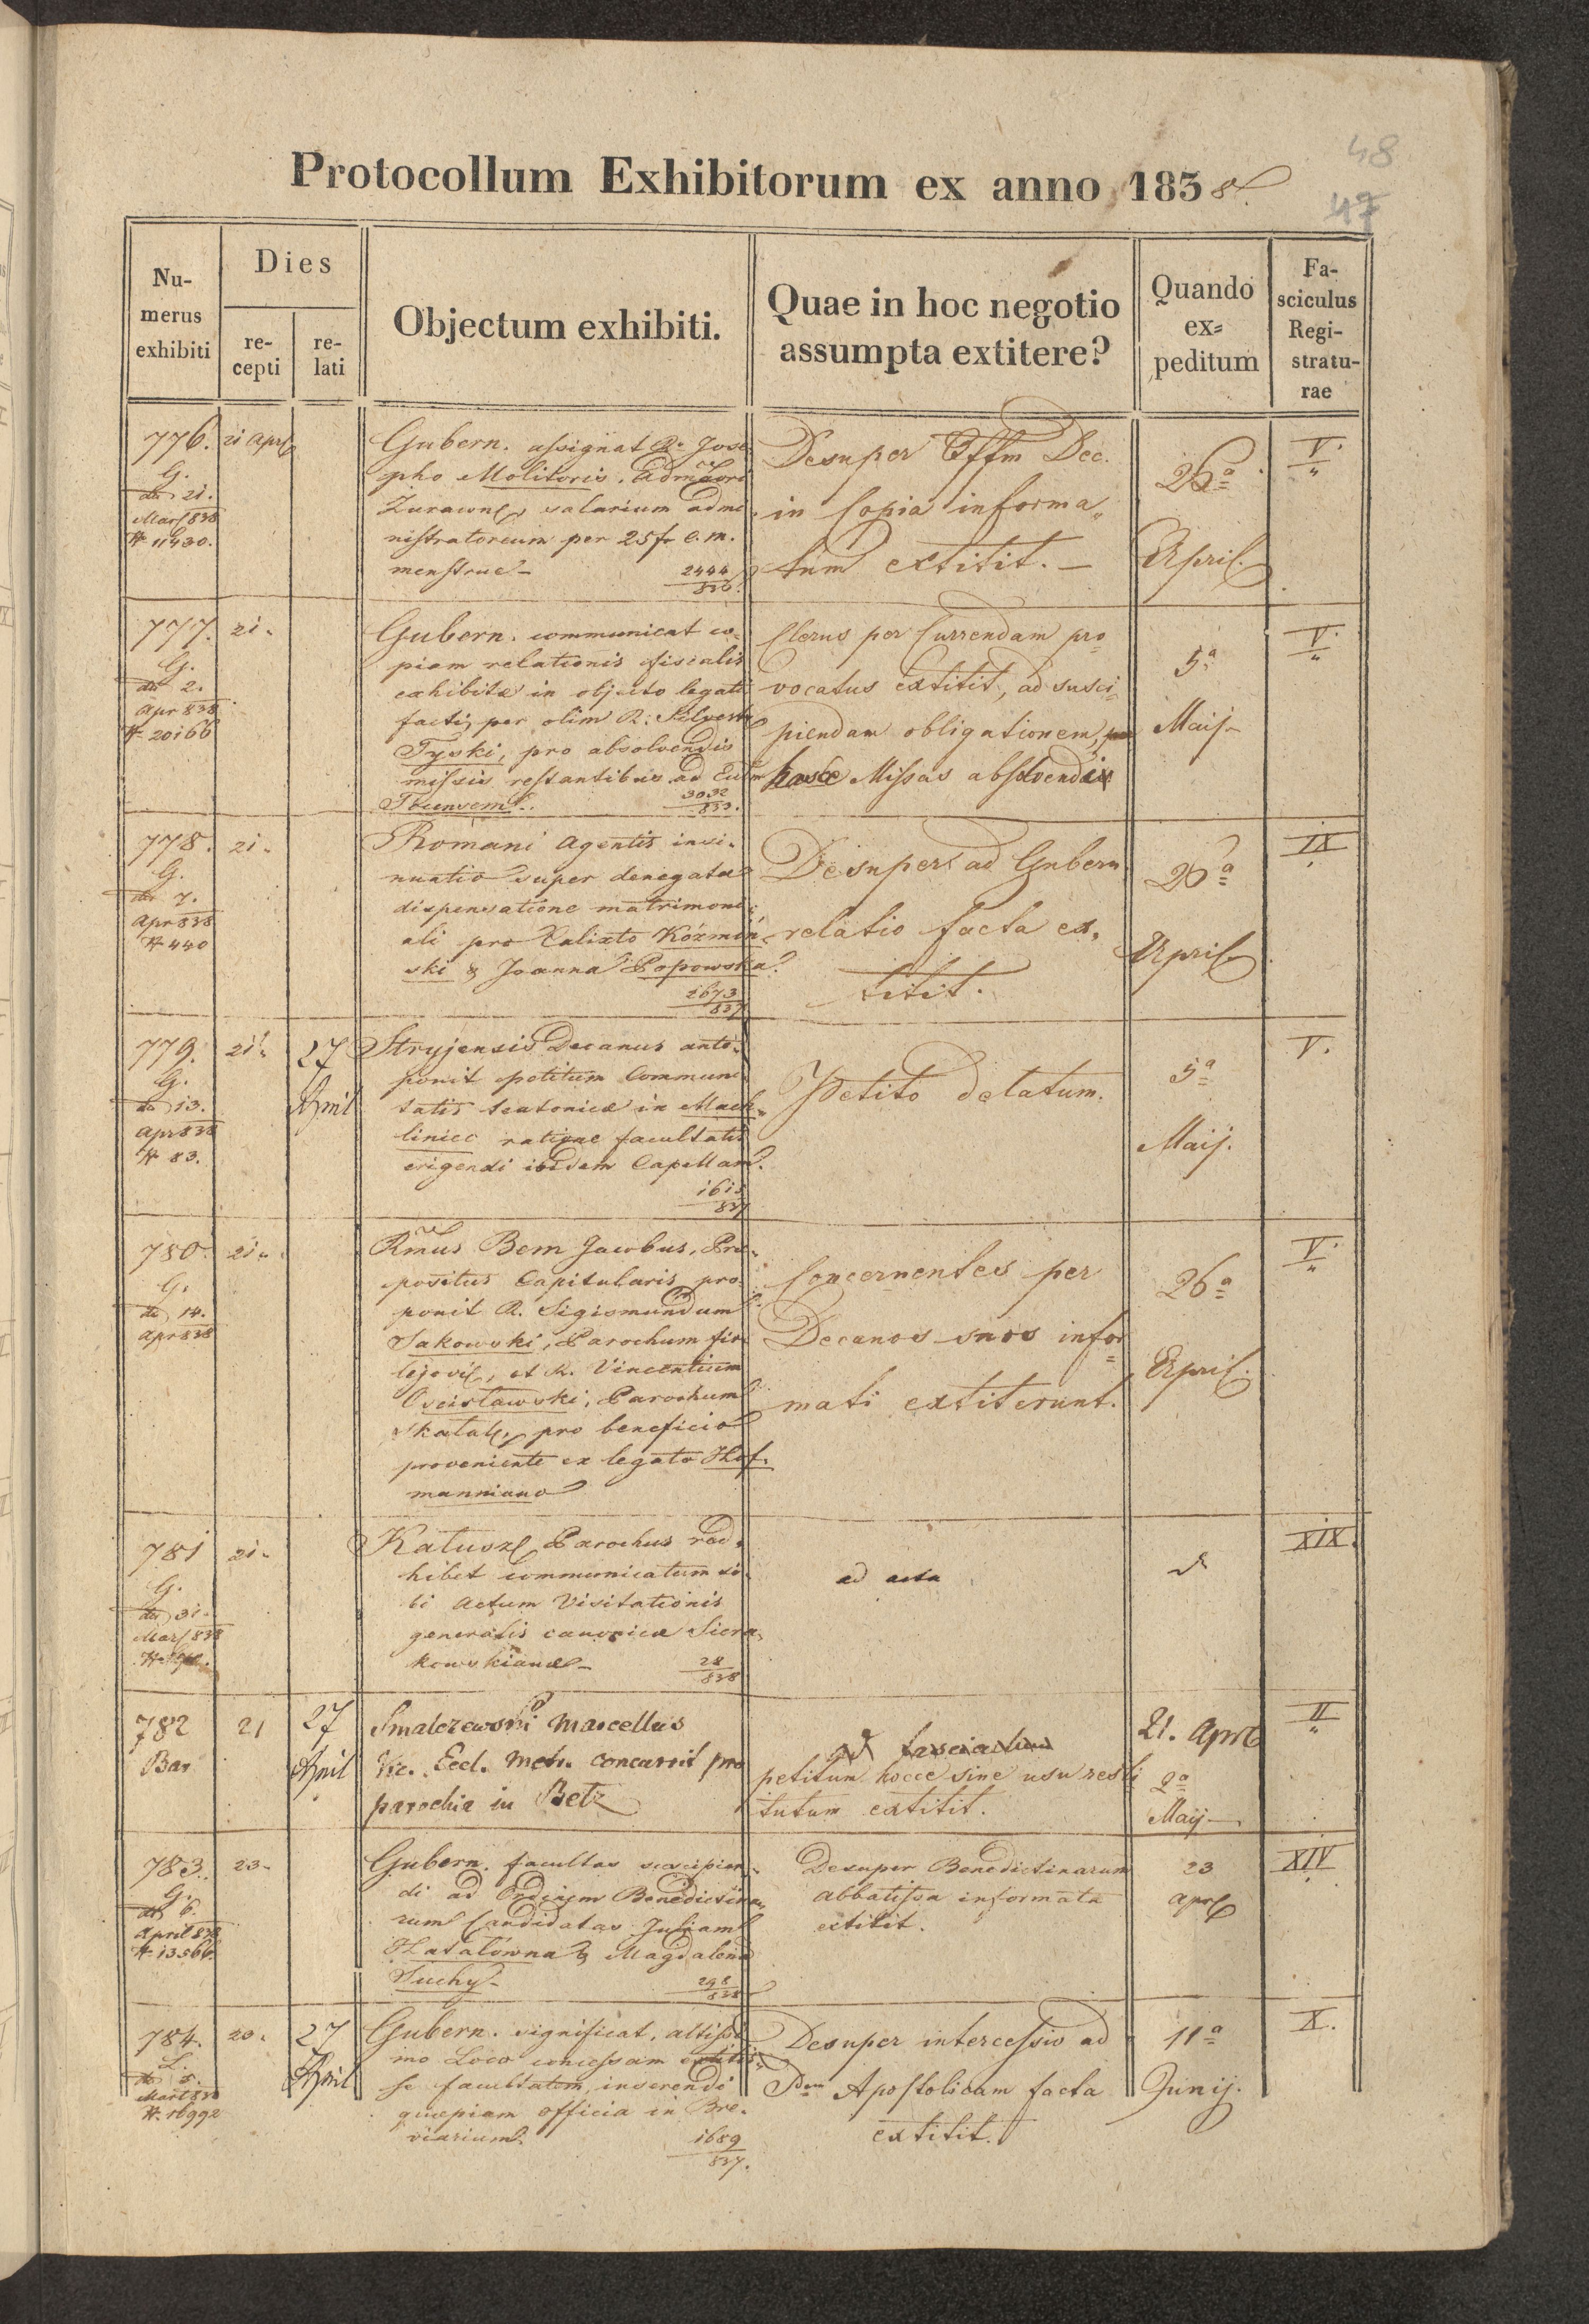 48
47
Protocollum Exhibitorum ex anno 1838.
Numerus exhibiti
Dies
recepti
relati
Objectum exhibiti.
Quae in hoc negotio assumpta extitere?
Quando ex=peditum
Fasciculus Registraturae
776. 21 Apr
G.
21.
Mart 838
11430.
Gubern. assignat R. Jose
pho Molitoris, Admtori
Zurawn, salarium admi
nistratorium per 25 fr C.M.
menstrue-
2444
836.
Desuper Offm Dec.
in Copia informa„
tum extitit. –
26a
April.
V.
777. 21.
G.
de 2.
Apr 838
# 20166
Gubern. communicat co-
piam relationis fiscalis
exhibitæ in objecto legati
facti per olim R. Silvestr
Tyski, pro absolvendis
missis restantibus ad Eccm
3032
833.
Clerus per Currendam pro
vocatus extitit, ad susci-
piendam obligationem,
hasce Missas absolvendi
5a
Maij-
V.
778. 21.
G.
de 7.
Apr 838
# 440
Romani Agentis insi-
nuatio super denegata
dispensatione matrimoni
ali pro Calixto Kóżmiń-
ski & Joanna Popowska.
1673
837
Desuper ad Gubern
relatio facta ex„
titit.
26a
April
IX
779. 21.
G.
de 13.
Apr 838
# 83.
27
April
Stryjensis Decanus anto-
ponit petitum Communi
tatis teutonicæ in Mach-
liniec ratione facultatis
erigendi ibidem Capellam.
1615
837
Petito delatum.
5a
Maij.
V.
780. 21.
G.
de 14.
Apr 838
Rmus Bem Jacobus, Præ-
positus Capitularis pro-
ponit R. Sigismundum
Sakowski, Parochum fir
lejovi, et R. Vincentium
Ocisławski, Parochum
Skalat, pro beneficio
proveniente ex legato Hof-
manniano
Concernentes per
Decanos suos infor
mati extiterunt.
26a
April.
V.
781 21.
G.
de 31.
Mart 838
Kałusz Parochus red-
hibet communicatum si
bi Actum Visitationis
generalis canonicæ Siera-
kowskianæ-
28
838
ad acta
XIX.
782 21
Bar
27
April
Smalczewski Marcellus
Vic. Eccl. Metr. concurrit pro
parochia in Betz
ad fasciculum
petitum hocce sine usu resti
tutum extitit.
21. Apr
2a
Maij
II
783. 23.
G.
de 6.
April 838
# 13566
Gubern. facultas suscipien-
di ad Ordinem Benedictina-
rum Candidatas Juliam
Hatalówna & Magdalena
Suchy-
298
838
Desuper Benedictinarum
abbatissa informata
extitit.
23
apr
XIV
784. 23.
de 5.
Mart 838
# 16992
27
April
Gubern. significat, altissi
mo Loco concessam extitis-
se facultatem inserendi
quæpiam officia in Bre-
viarium.
1689
837.
Desuper intercessio ad
Sdem Apostolicam facta
extitit.
11a
Junij.
X.